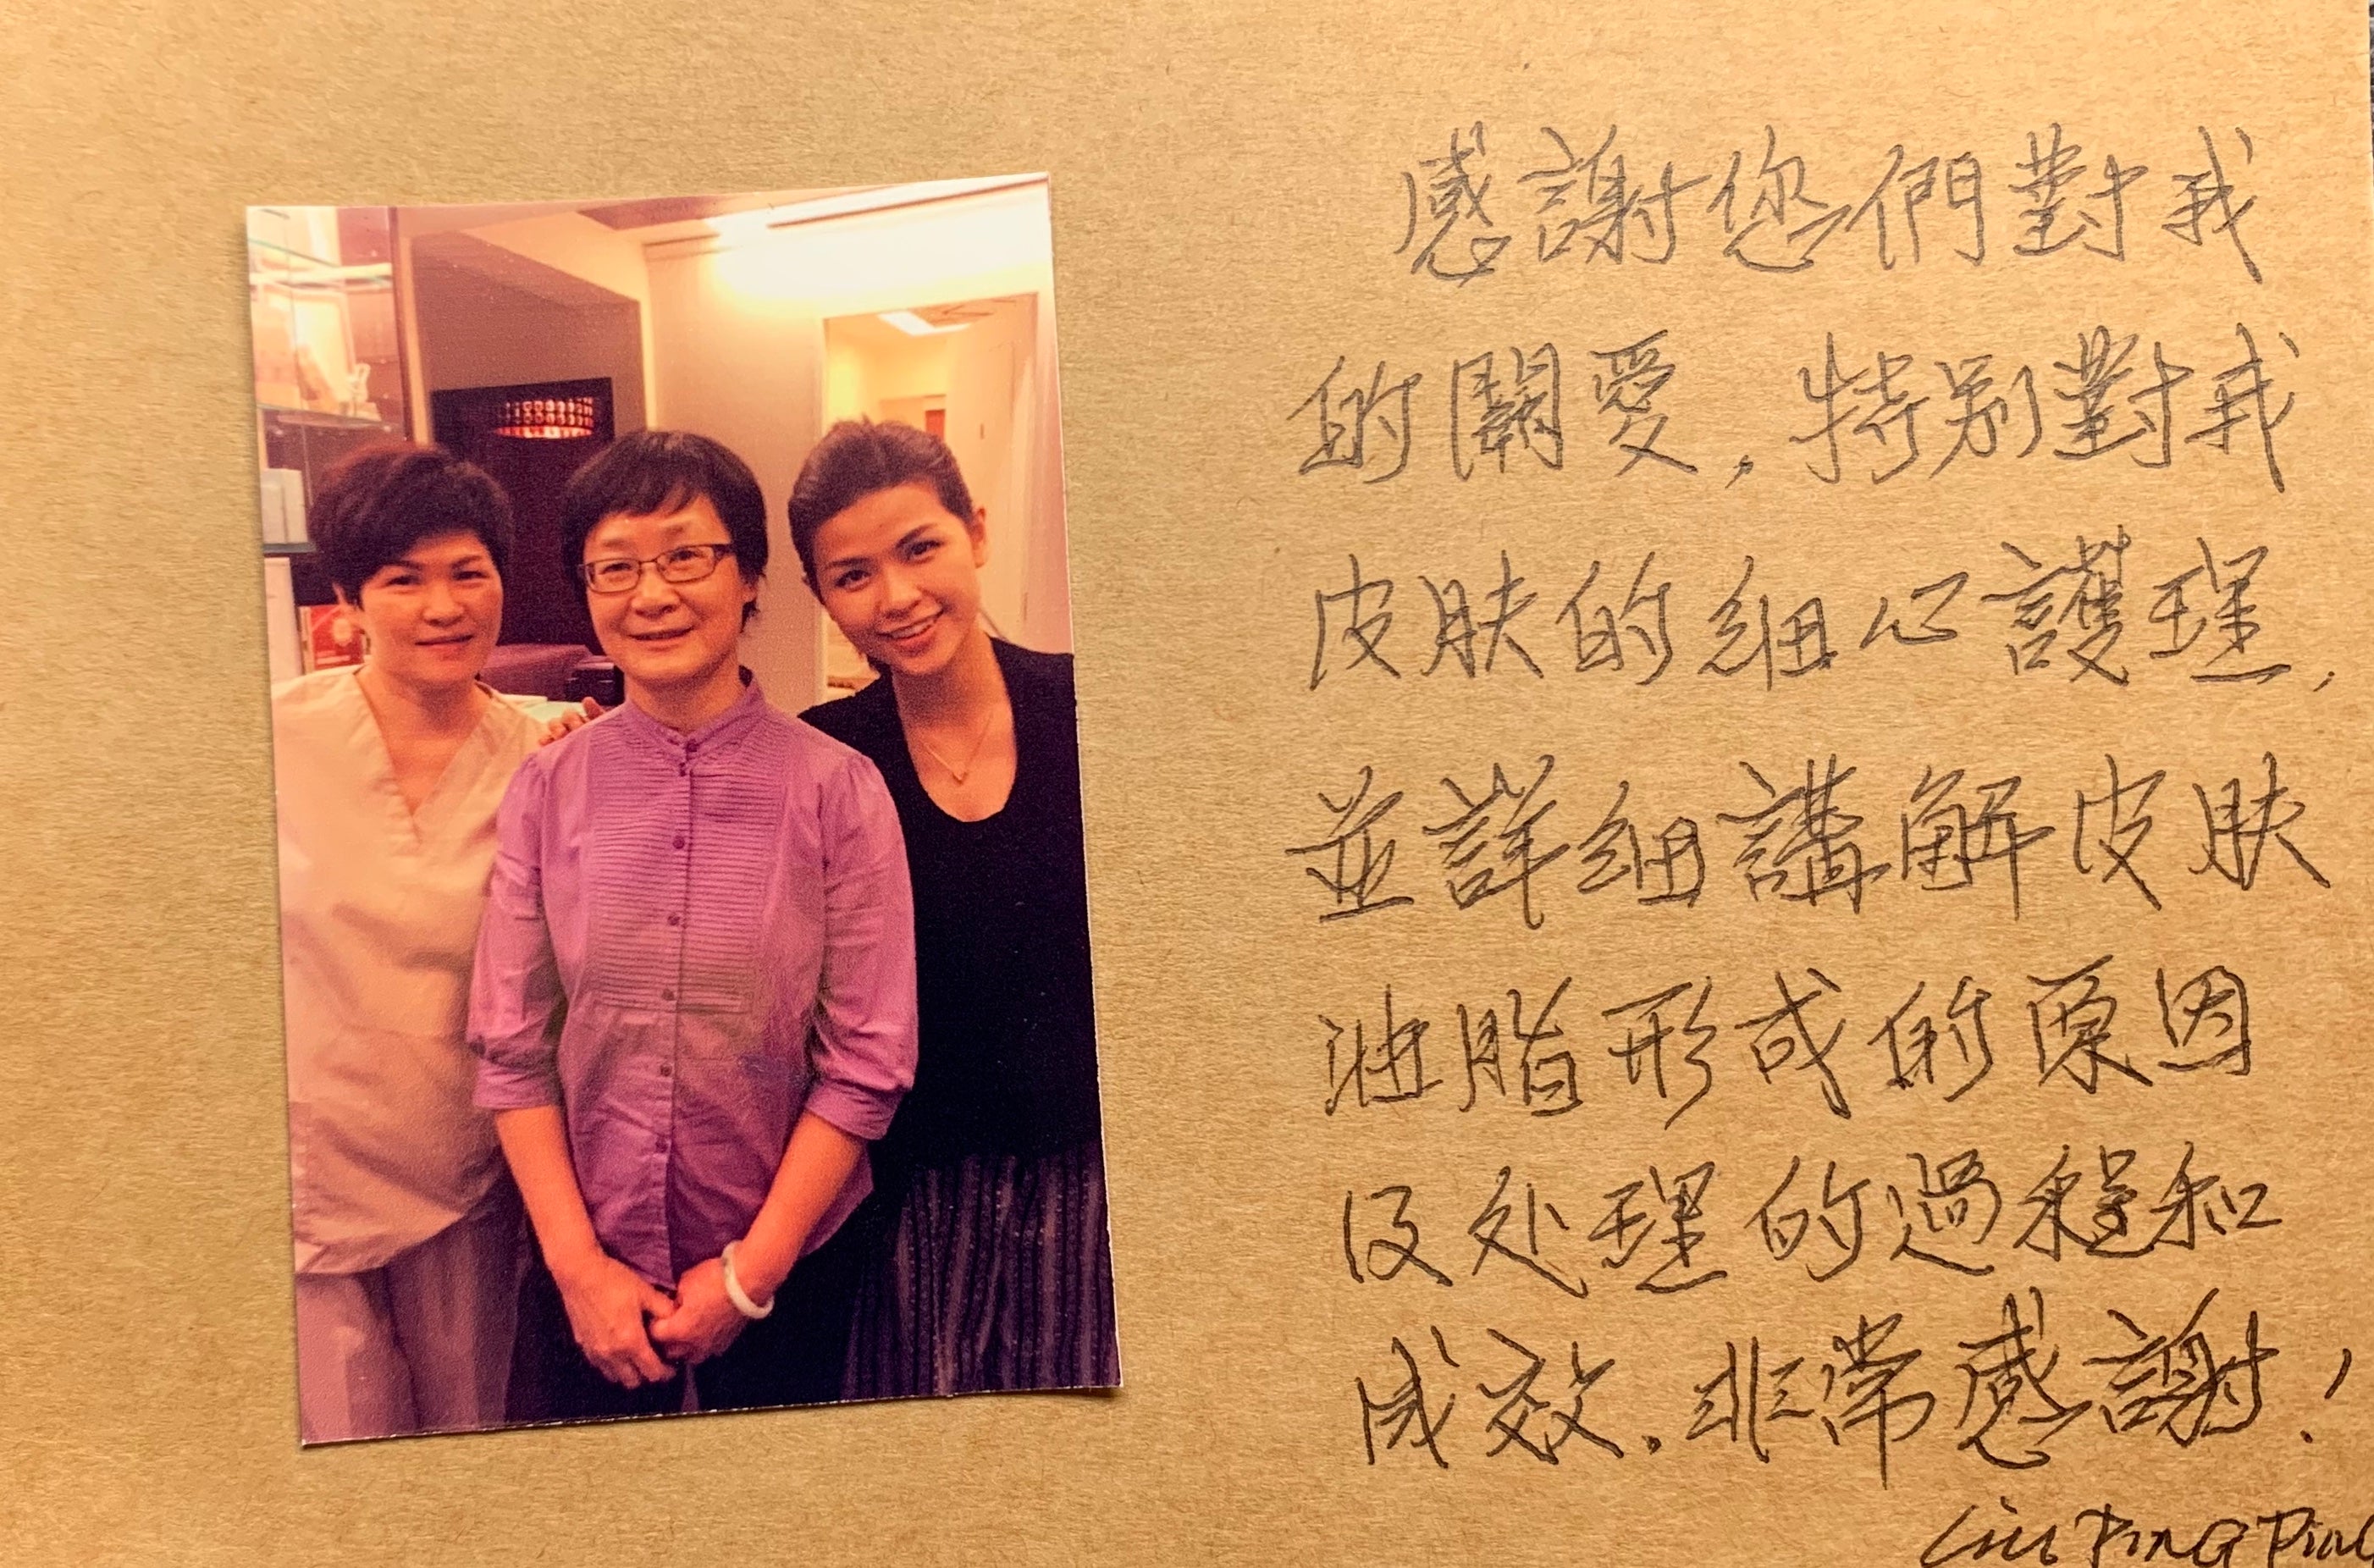 感謝您們對我
的關愛，特别對我
皮肤的細心護理，
並詳細講解皮肤
油脂形成的原因
及处理的過程和
成效．非常感謝！